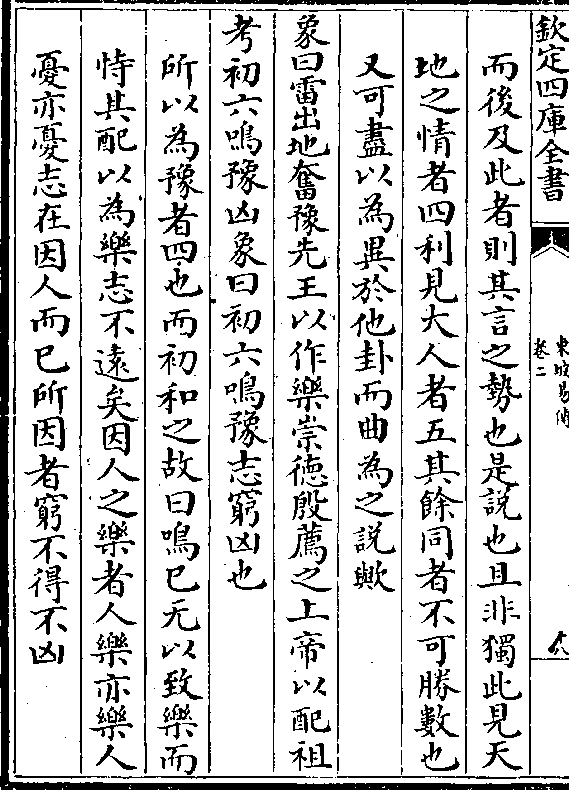 欽定四庫全書
東坡易傳
卷二
而後及此者則其言之勢也是說也且非獨此見天
地之情者四利見大人者五其餘同者不可勝數也
又可盡以為異於他卦而曲為之說歟
象曰雷出地奮豫先王以作樂崇德殷薦之上帝以配祖
考初六鳴豫凶象曰初六鳴豫志窮凶也
所以為豫者四也而初和之故曰鳴已无以致樂而
恃其配以為樂志不遠矣因人之樂者人樂亦樂人
憂亦憂志在因人而已所因者窮不得不凶